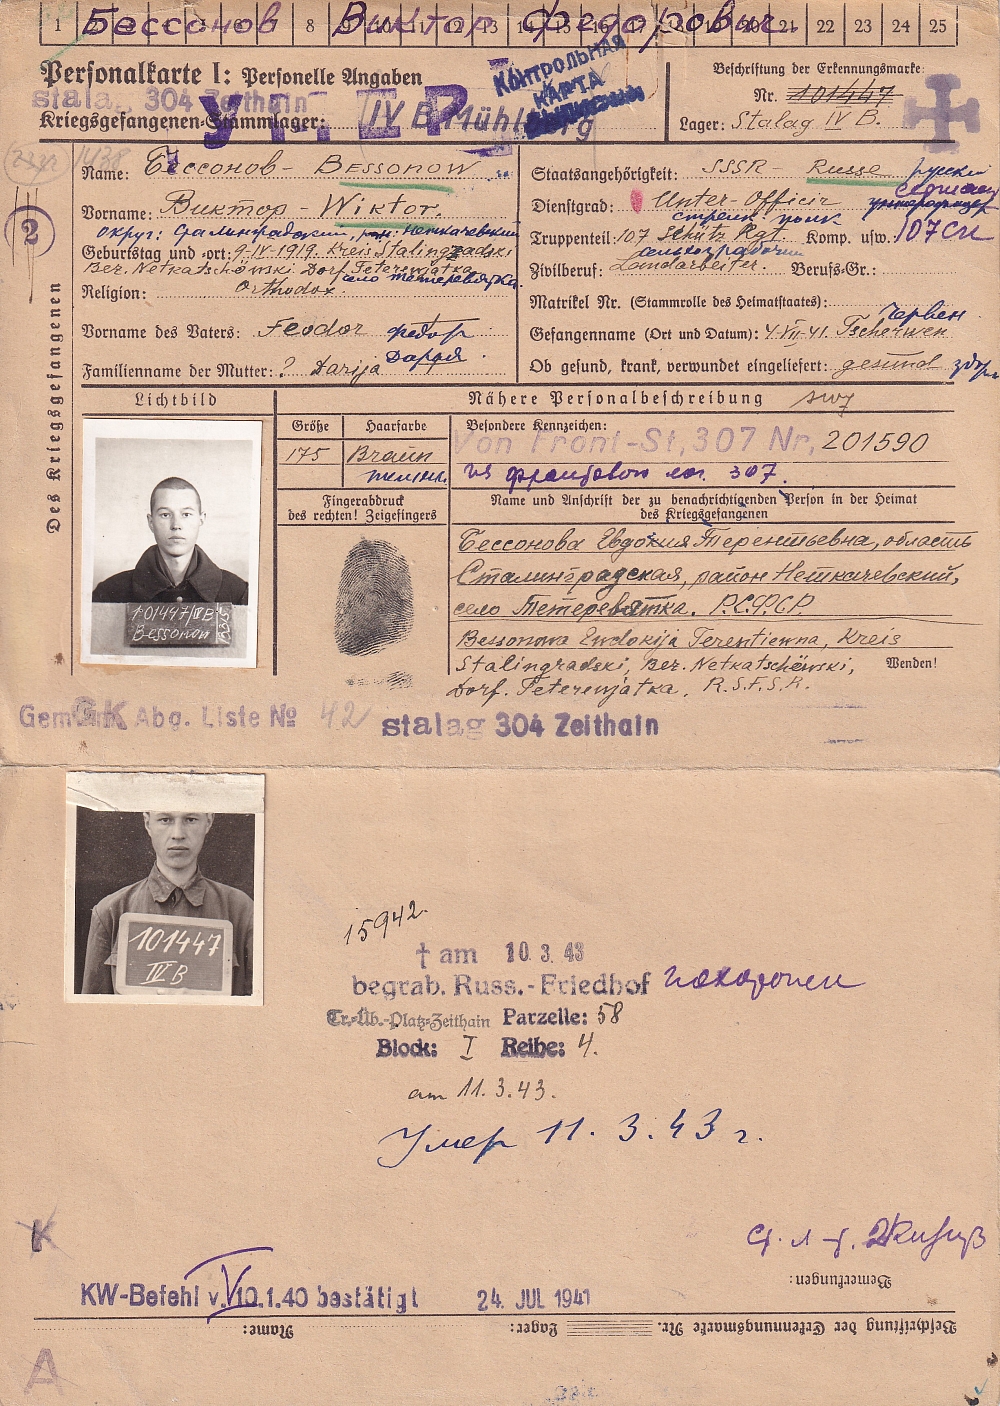 1 8 13 22 23 24 25
Бессонов Виктор Федорович
Personalkarte I: Personelle Angaben
КОНТРОЛЬНАЯ КАРТА
Beschriftung der Erkennungsmarke:
stalag 304 Zeithain
УМЕР
Nr. 101447
Kriegsgefangenen-Stammlager: IV B Mühlberg
Lager: Stalag IV B.
2
Des Kriegsgefangenen
Name: Бессонов - BESSONOW
Staatsangehörigkeit: SSSR - Russe русский
Vorname: Виктор - Wiktor.
Dienstgrad: Unter-Officir
округ: Сталинградский,
стрелк полк
Geburtstag und -ort: 9-IV-1919. Kreis Stalingradski
Truppenteil: 107 Schütz Rgt. Komp. usw.: 107 СП
Ber. Netkatschöwski Dorf. Peterewjatka
село Тетеревятка.
Zivilberuf: Landarbeiter. Berufs-Gr.:
Religion: Orthodox.
Matrikel Nr. (Stammrolle des Heimatstaates):
Червен
Vorname des Vaters: Feodor Федор
Gefangenname (Ort und Datum): 4-VII-41. Tscherwen
Familienname der Mutter: ? Darija Дарья
Ob gesund, krank, verwundet eingeliefert: gesund
Lichtbild
Nähere Personalbeschreibung
Größe Haarfarbe Besondere Kennzeichen:
175 Braun Von Front-St, 307 Nr, 201590
темн. из фронтового лаг. 307.
Fingerabdruck
des rechten! Zeigefingers
Name und Anschrift der zu benachrichtigenden Person in der Heimat
des Kriegsgefangenen
Бессонова Евдокия Терентьевна, область
Сталинградская, район Неткачевский,
село Тетеревятка. Р.С.Ф.С.Р.
Bessonowa Ewdokija Terentiewna, Kreis
Stalingradski, Ber. Netkatschöwski,
Dorf. Peterewjatka, R.S.F.S.R.
Wenden!
101447/IV B
Bessonow
Abg. Liste № 42 stalag 304 Zeithain
101447
IV B
15942.
† am 10.3.43
begrab. Russ.-Friedhof похоронен
Tr.-Üb.-Platz-Zeithain Parzelle: 58
Block: I Reihe: 4.
am 11.3.43.
Умер 11.3.43 г.
K
Bemerkungen:
KW-Befehl v. 10.1.40 bestätigt 24. JUL 1941
Beschriftung der Erkennungsmarke Nr. Lager: Name:
A